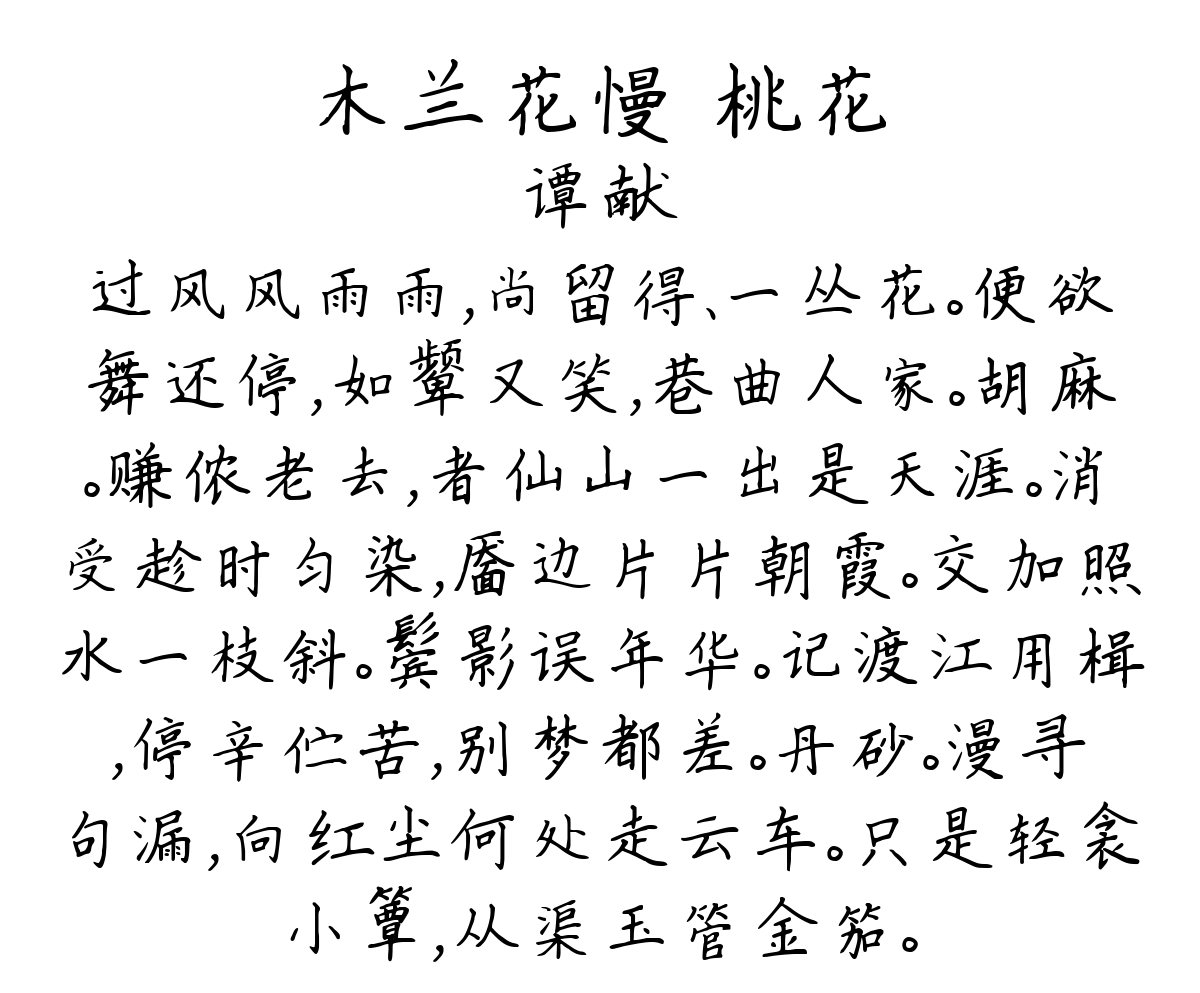 木兰花慢 桃花
谭献
过风风雨雨,尚留得、一丛花。便欲
舞还停,如颦又笑,巷曲人家。胡麻
。赚侬老去,者仙山一出是天涯。消
受趁时匀染,靥边片片朝霞。交加照
水一枝斜。鬓影误年华。记渡江用楫
,停辛伫苦,别梦都差。丹砂。漫寻
句漏,向红尘何处走云车。只是轻衾
小簟,从渠玉管金笳。